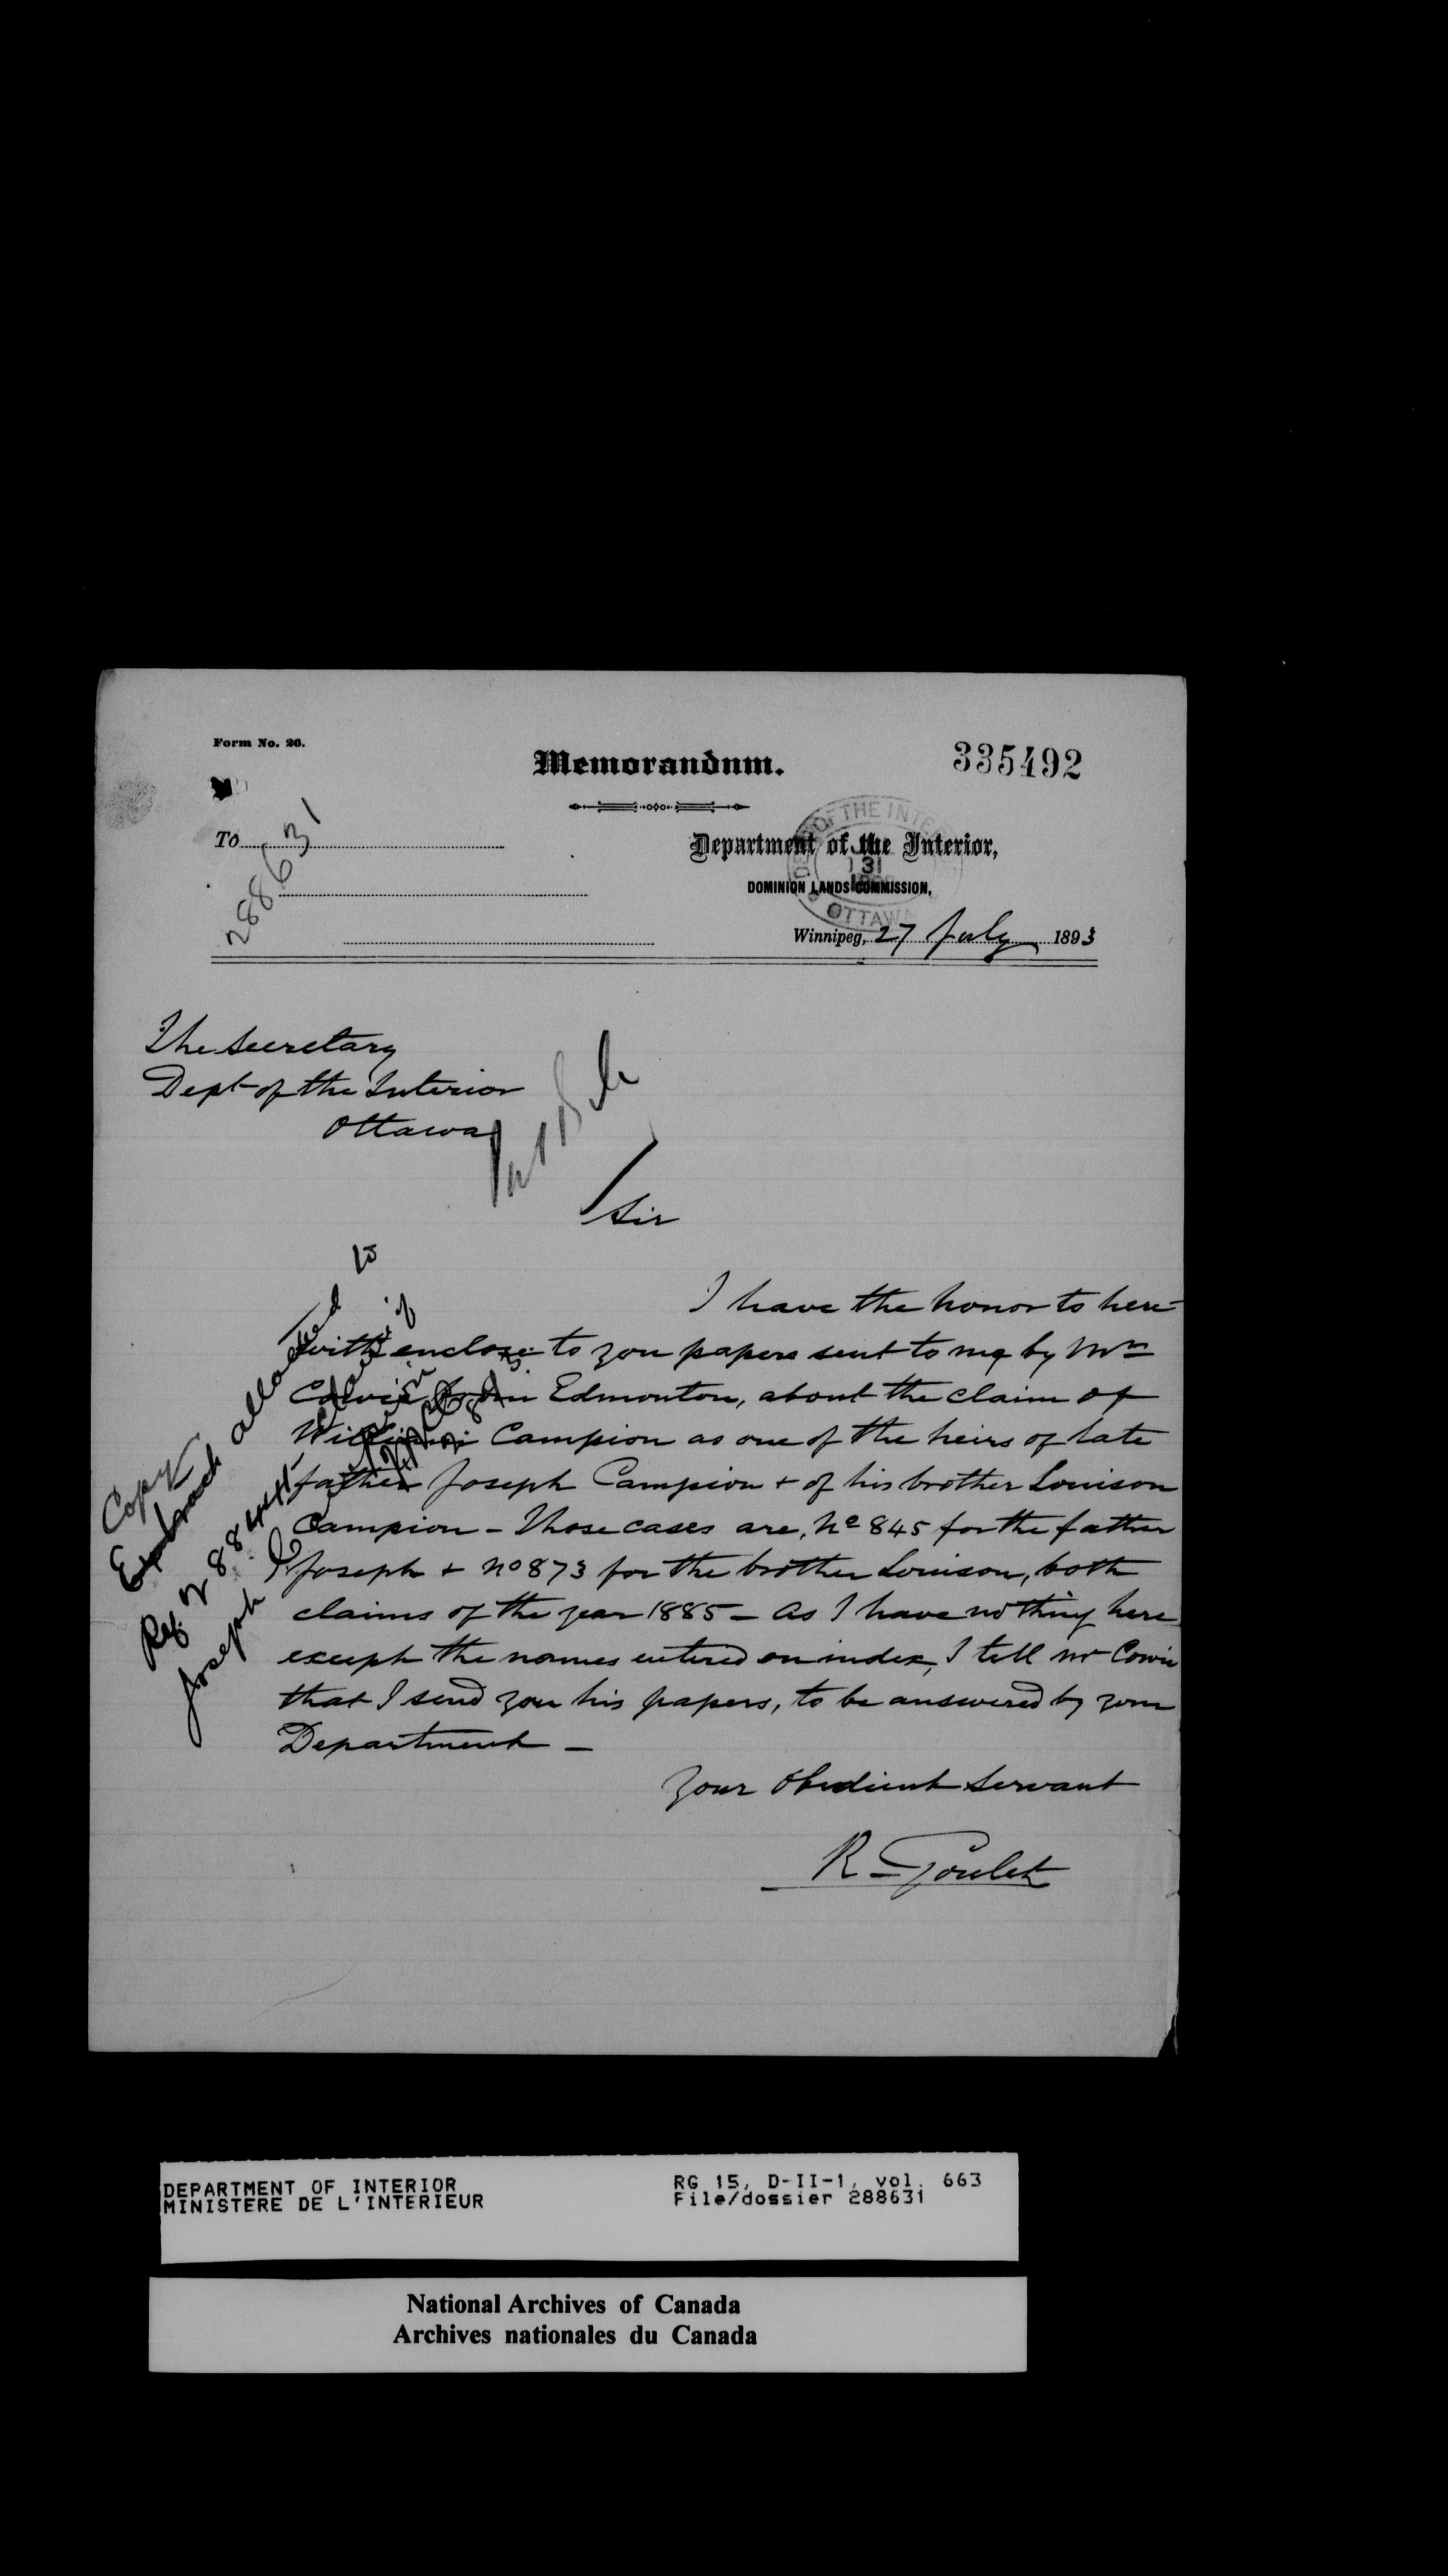 Form No. 26.
Memorandum.
335492
To
288631
Department of the Interior,
DOMINION LANDS COMMISSION,
OF THE INTE
31
OTTAWA
Winnipeg, 27 July 1893
The Secretary
Dept of the Interior
Ottawa
Sir
I have the honor to here-
with enclose to you papers sent to me by Mr
Cowie from Edmonton, about the claim of
Campion as one of the heirs of late
father Joseph Campion + of his brother Louison
Campion - Those cases are, No 845 for the father
Joseph + No 873 for the brother Louison, both
claims of the year 1885 - As I have nothing here
except the names entered on index, I tell Mr Cowie
that I send you his papers, to be answered by your
Department -
Your obedient servant
R Goulet
Copy
attached to
Ref. 88444
Joseph
DEPARTMENT OF INTERIOR
MINISTERE DE L'INTERIEUR
RG 15, D-II-1, vol. 663
File/dossier 288631
National Archives of Canada
Archives nationales du Canada